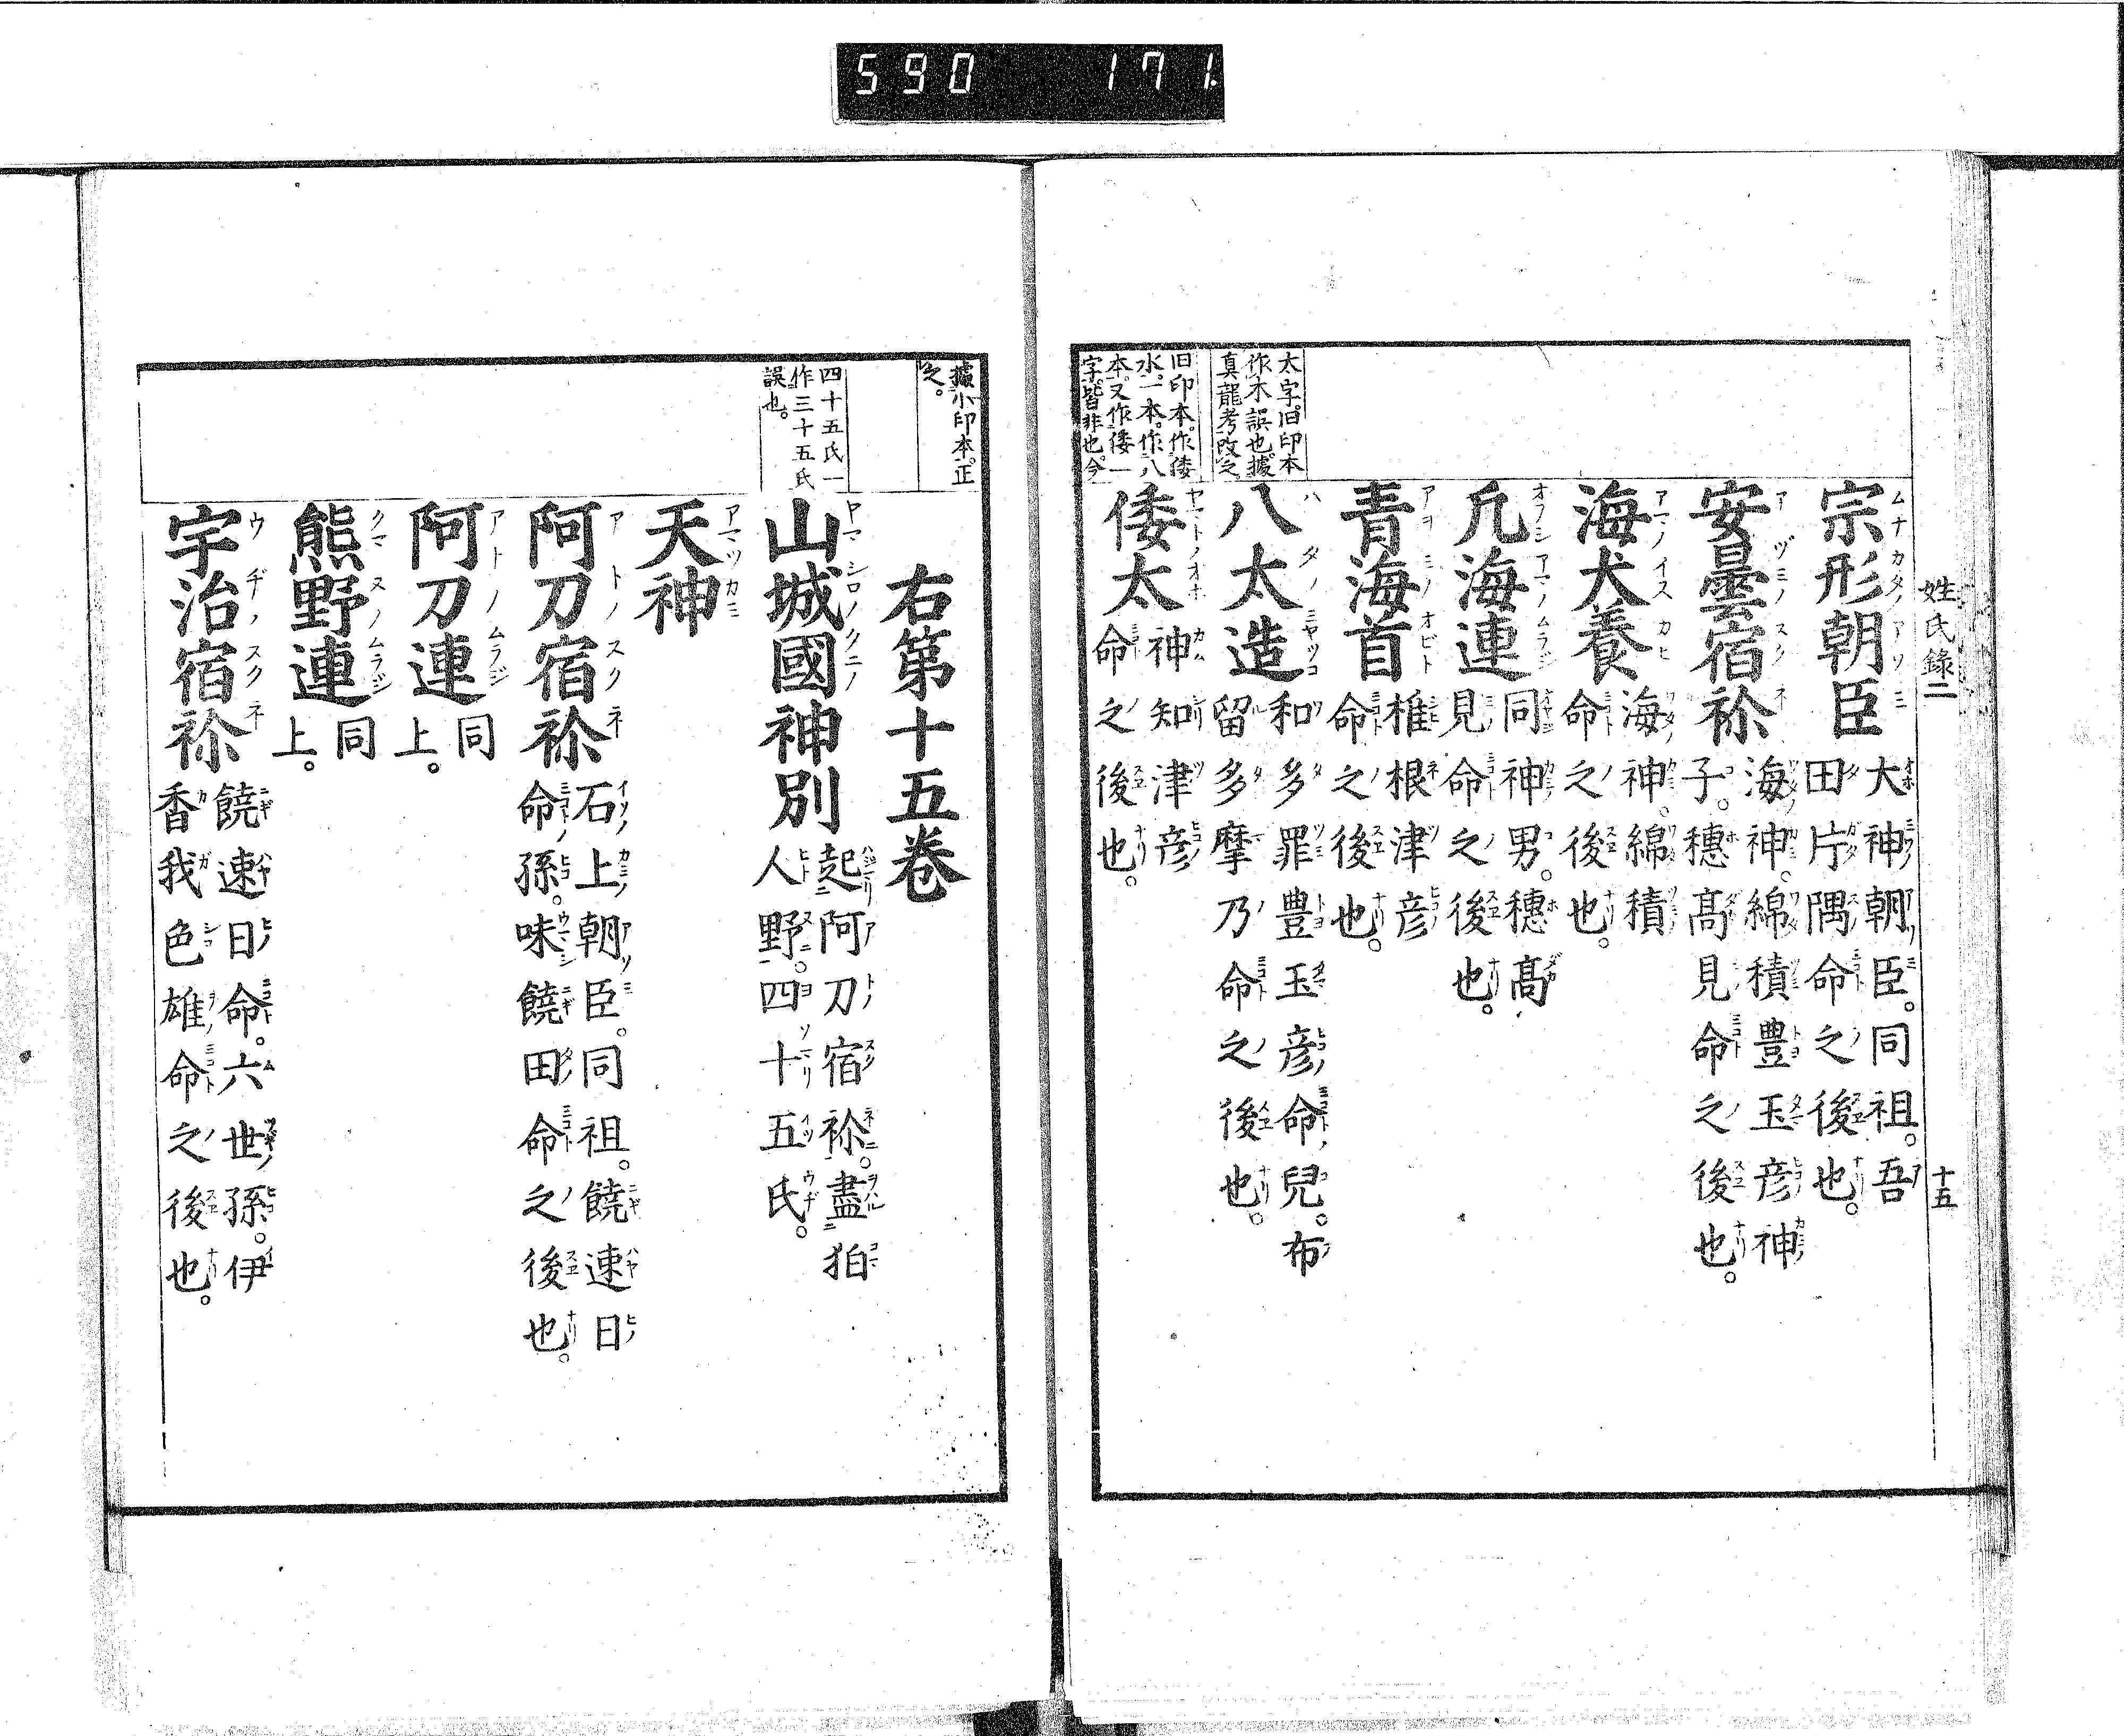 590 171
姓氏錄二 十五
宗形朝臣
大神朝臣。同祖。吾
田片隅命之後也。
安曇宿祢
海神。綿積豊玉彦神
子。穂髙見命之後也。
海犬養
海神。綿積
命之後也。
凡海連
同神男。穂髙
見命之後也。
青海首
椎根津彦
命之後也。
八太造
和多罪豊玉彦命兒。布
留多摩乃命之後也。
倭太
神知津彦
命之後也。
太字。旧印本
作木誤也。據
真龍考改之。
旧印本。作倭
水。一本。作八
本。又作倭一
字。皆非也。今
據小印本。正
之。
右第十五卷
山城國神別
起阿刀宿祢。盡狛
人野。四十五氏。
四十五氏一
作三十五氏
誤也。
天神
阿刀宿祢
石上朝臣。同祖。饒速日
命孫。味饒田命之後也。
阿刀連
同
上。
熊野連
同
上。
宇治宿祢
饒速日命。六世孫。伊
香我色雄命之後也。